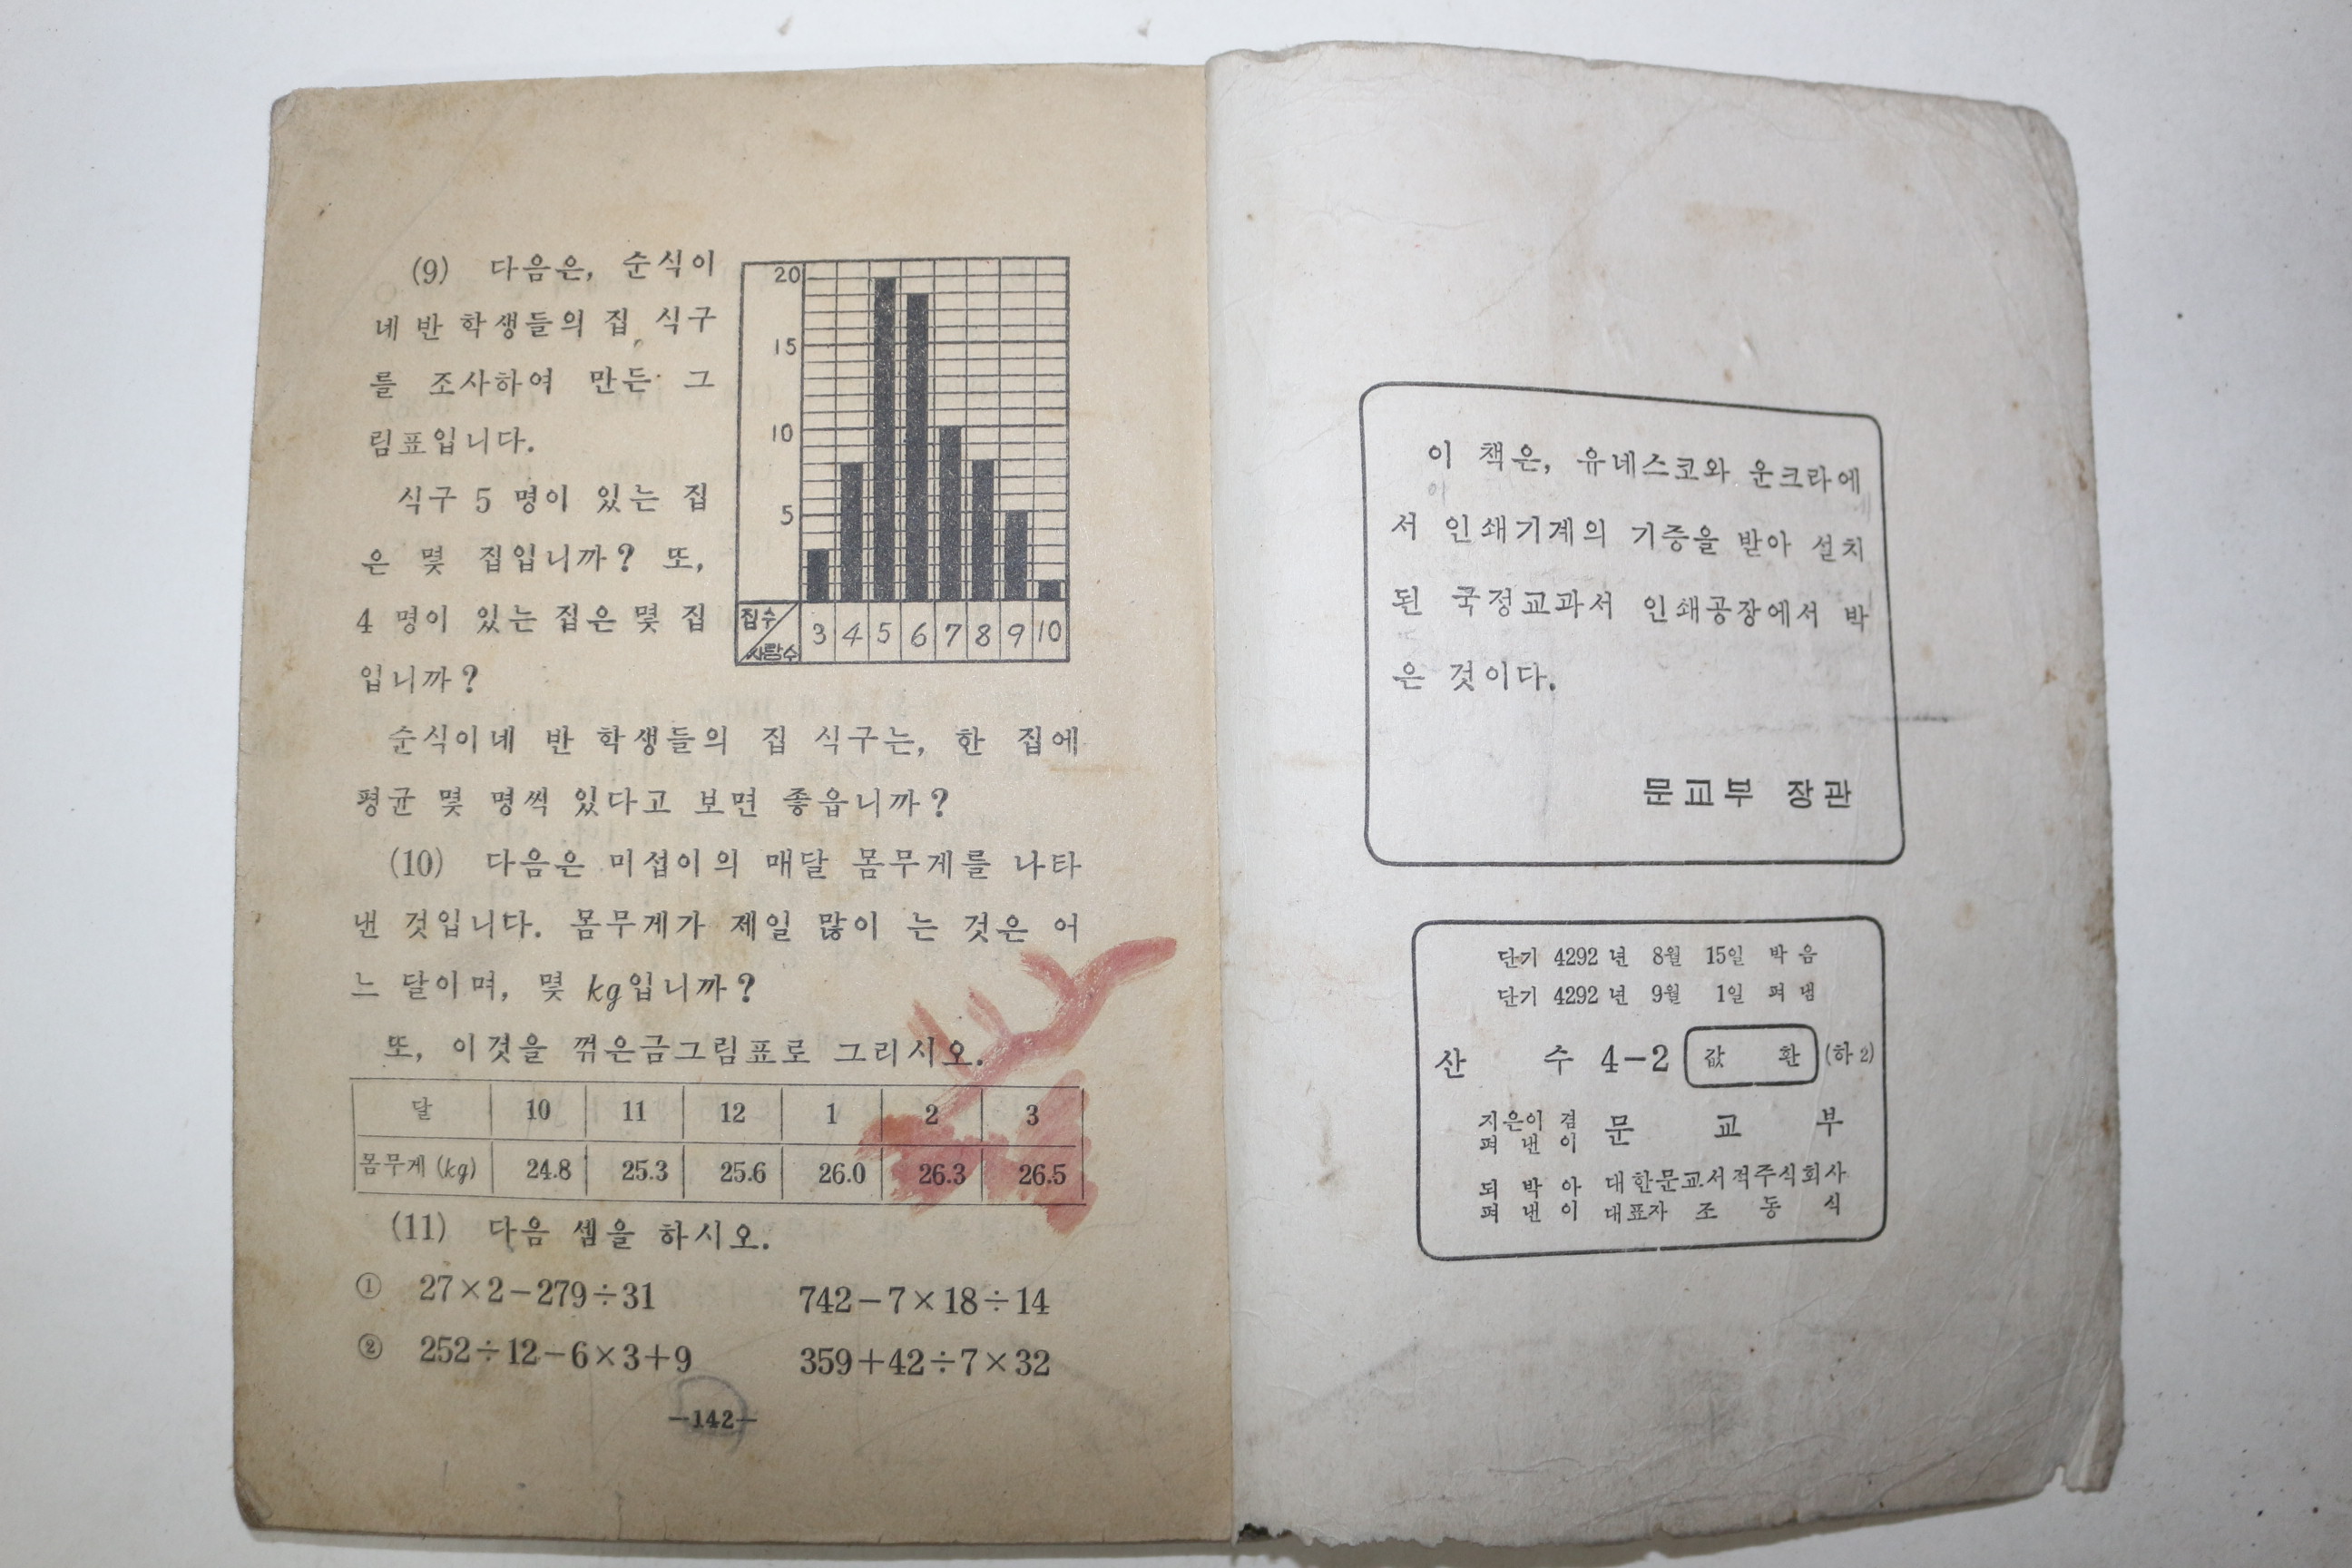 (9) 다음은, 순식이
네 반 학생들의 집 식구
를 조사하여 만든 그
림표입니다.
식구 5 명이 있는 집
은 몇 집입니까? 또,
4 명이 있는 집은 몇 집
입니까?
20
15
10
5
집수
사람수
3 4 5 6 7 8 9 10
순식이네 반 학생들의 집 식구는, 한 집에
평균 몇 명씩 있다고 보면 좋읍니까?
(10) 다음은 미섭이의 매달 몸무게를 나타
낸 것입니다. 몸무게가 제일 많이 는 것은 어
느 달이며, 몇 kg입니까?
또, 이것을 꺾은금그림표로 그리시오.
달 10 11 12 1 2 3
몸무게 (kg) 24.8 25.3 25.6 26.0 26.3 26.5
(11) 다음 셈을 하시오.
① 27×2−279÷31 742−7×18÷14
② 252÷12−6×3+9 359+42÷7×32
—142—
이 책은, 유네스코와 운크라에
서 인쇄기계의 기증을 받아 설치
된 국정교과서 인쇄공장에서 박
은 것이다.
문교부 장관
단기 4292 년 8월 15일 박음
단기 4292 년 9월 1일 펴냄
산 수 4−2 값 환 (하2)
지은이 겸
펴 낸 이 문 교 부
되 박 아
펴 낸 이 대한문교서적주식회사
대표자 조 동 식